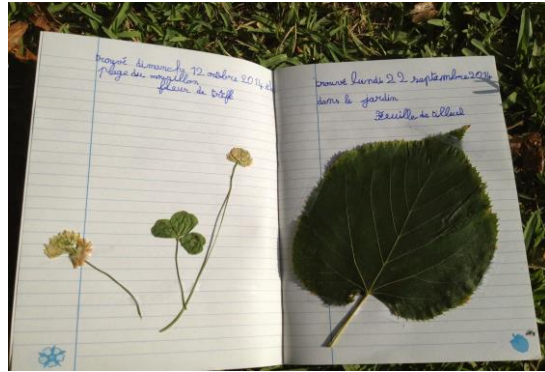 trouvé dimanche 12 octobre 2014
plage du mourillon
fleur de trèfle
trouvé lundi 22 septembre 2014
dans le jardin
Feuille de tilleul